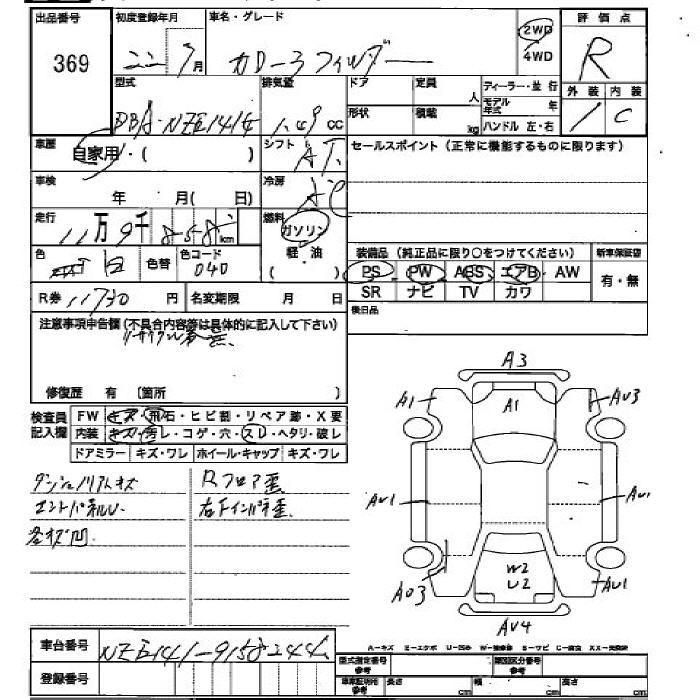 出品番号 初度登録年月 車名・グレード 評価点
369 22年7月 カローラフィルダー 2WD 4WD R
外装 内装
1 C
型式 排気量 ドア 定員 人 ディーラー・並行
DBA-NZE141G 1.49cc 形状 積載 kg モデル年式 年
ハンドル 左・右
車歴 自家用・( ) シフト AT セールスポイント(正常に機能するものに限ります)
車検 年 月(日) 冷房 AC
走行 11万9千 km 燃料 ガソリン
軽油
( )
色 白 色替 色コード 040
装備品(純正品に限り○をつけてください) 新車保証書
PS PW ABS エアB AW 有・無
SR ナビ TV カワ
R券 11730円 名変期限 月 日
後日品
注意事項申告欄(不具合内容等は具体的に記入して下さい)
リサイクル券無.
修復歴 有 〔箇所 〕
検査員記入欄 FW キズ・飛石・ヒビ割・リペア跡・X要
内装 キズ・汚レ・コゲ・穴・スレ・ヘタリ・破レ
ドアミラー キズ・ワレ ホイール・キャップ キズ・ワレ
A3
A1 A1 AU3
AU1 AU1
W2
U2
AU3 AU1
AU4
Rフロア歪
エンドパネルU.
各キズ凹.
A-キズ E-エクボ U-凹み W-補修跡 S-サビ C-腐食 XX-交換済
車台番号 NZE141-9158244
登録番号
型式指定番号 参考 類別区分番号 参考
車庫証明用 参考 長さ cm 幅 cm 高さ cm